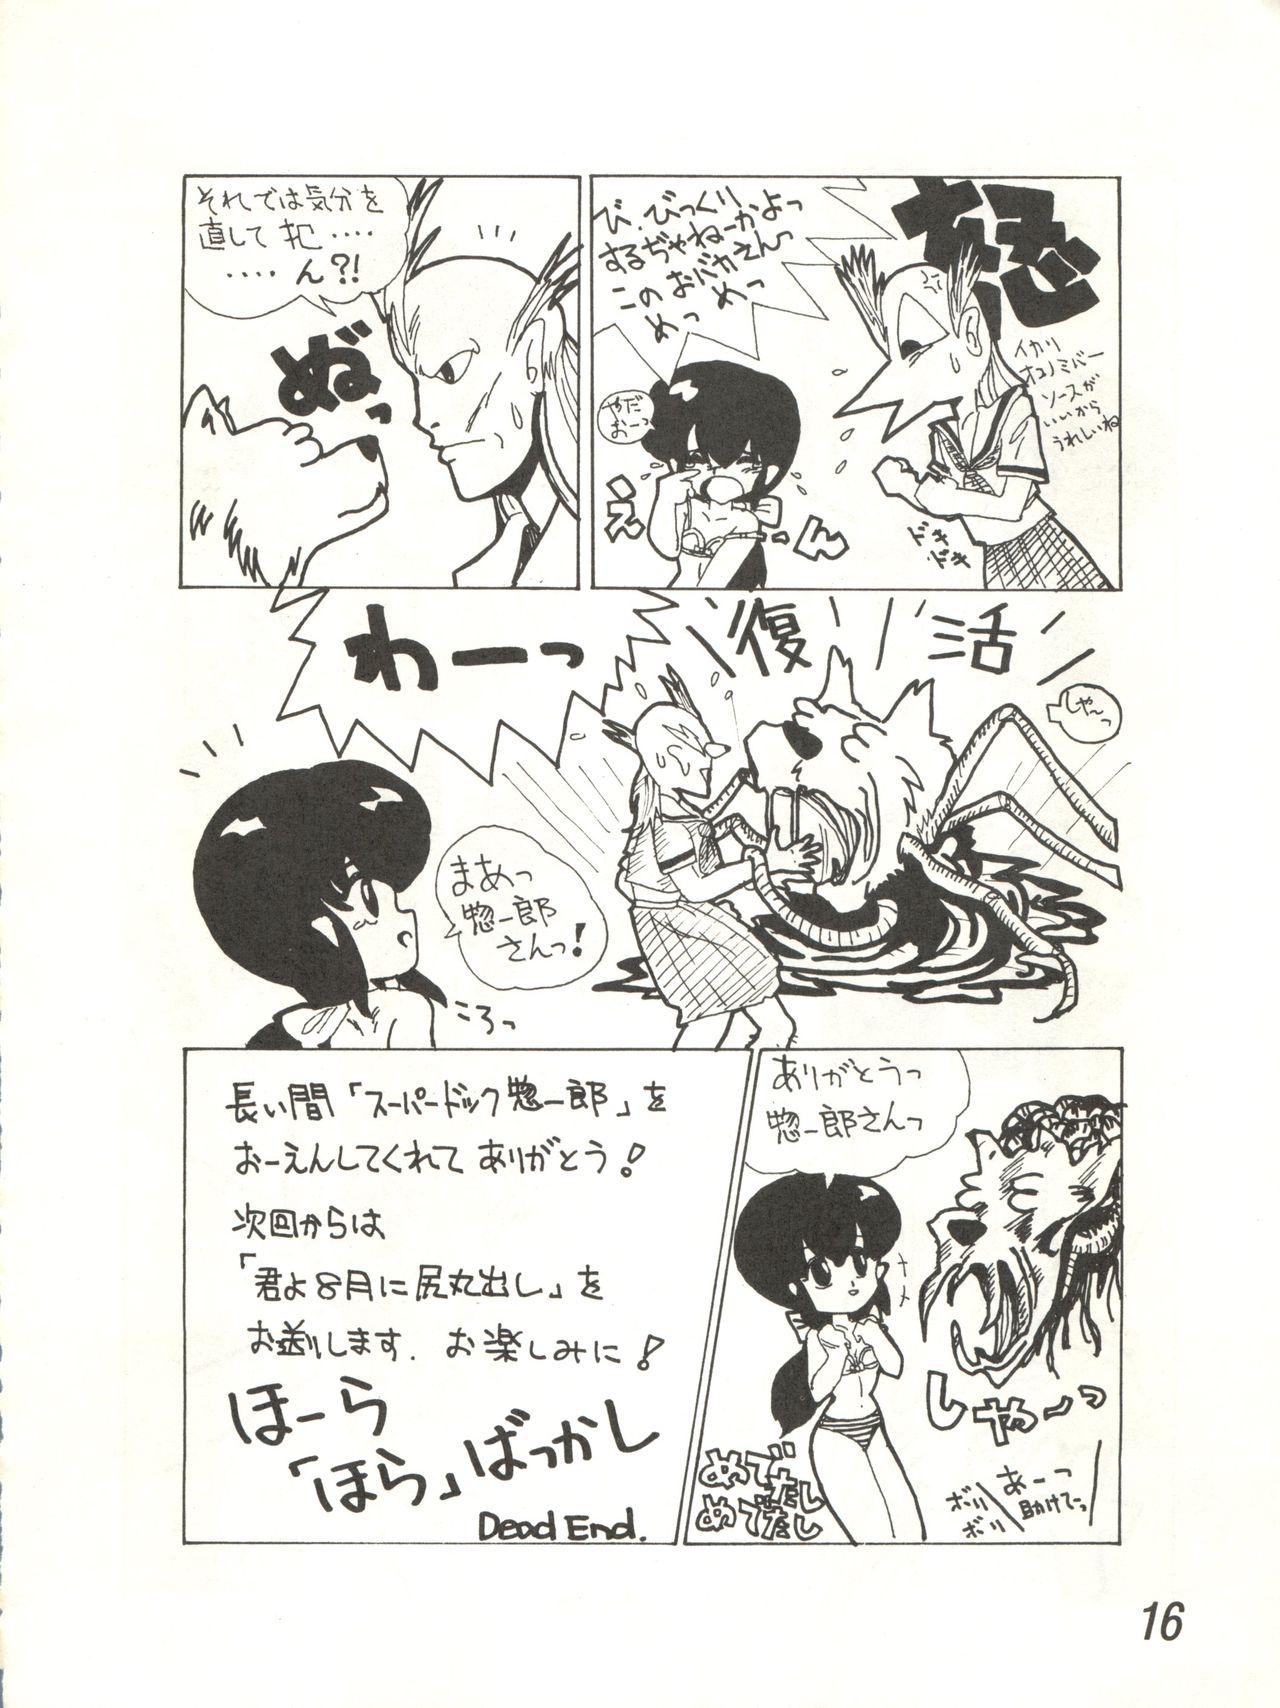 怒
び、びっくり
するぢゃねーかよっ
このおバカえんっ
めっ めっ
やだ
おーっ
え
ーん
イカリ
オコノミバー
ソースが
いいから
うれしいね
ドキ
ドキ
それでは気分を
直して 犯‥‥
‥‥ん?!
ぬっ
わーっ
復活
しゃーっ
まあっ
惣一郎
さんっ!
ころっ
ありがとうっ
惣一郎さんっ
しゃーっ
あーっ
助けてっ
ボリ
ボリ
めでたし
めでたし
長い間「スーパードック惣一郎」を
おーえんしてくれて ありがとう!
次回からは
「君よ8月に尻丸出し」を
お送りします. お楽しみに!
ほーら
「ほら」ばっかし
Dead End.
16